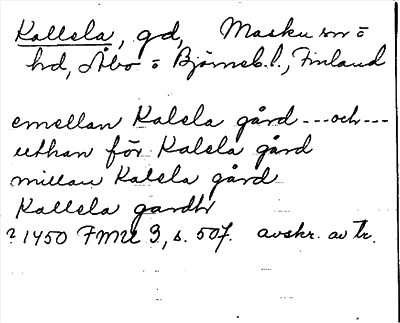 Kallela, gd, Masku sn o
hd, Åbo o Björneb.l., Finland
emellan Kalela gård --- och ---
uthan för Kalela gård
millan Kalela gård
Kallela gardh
? 1450 FMU 3, s. 507. avskr. av tr.